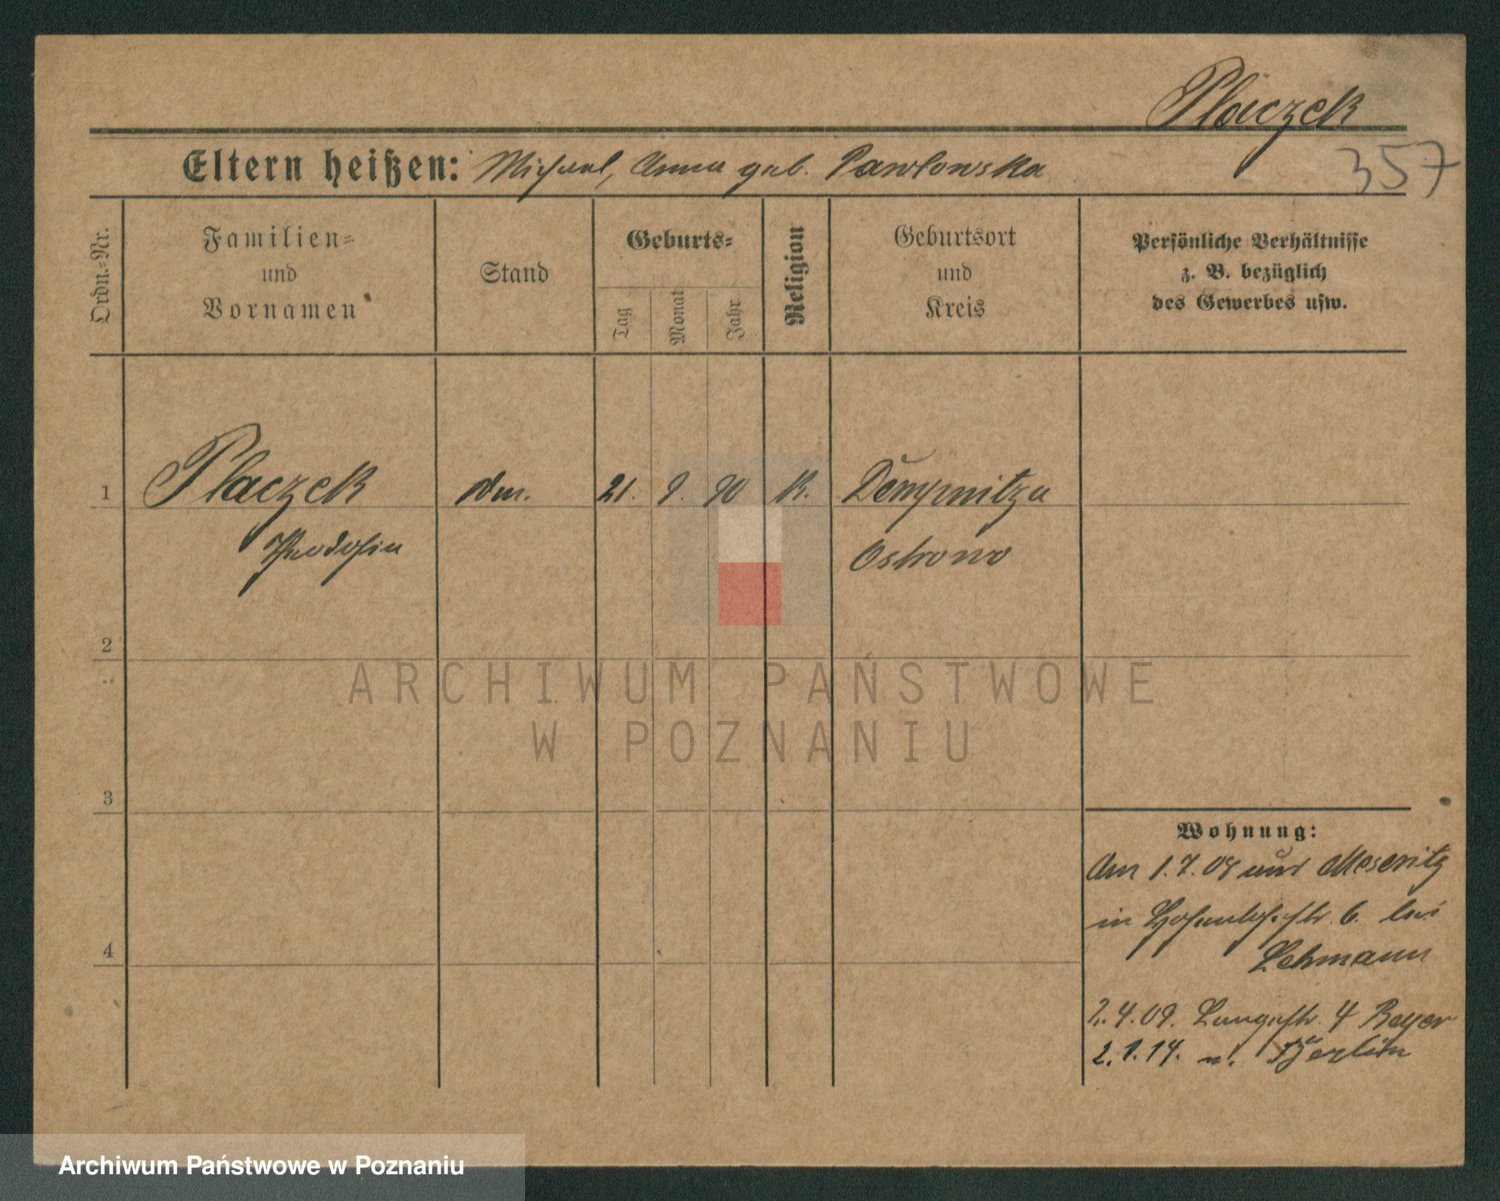 Placzek
357
Eltern heißen: Michael, Anna geb. Pawlowska
Ordn.-Nr.
Familien-
und
Vornamen
Stand
Geburts-
Tag
Monat
Jahr
Religion
Geburtsort
und
Kreis
Persönliche Verhältnisse
z. B. bezüglich
des Gewerbes usw.
1 Placzek 21. 9. 90 K.
Theodosia Ostrowo
2
3
4
Wohnung:
Am 1.7.08 Meseritz
in 6. bei
Lehmann
2.4.09. Langestr. 4 Beyer
2.1.14. n. Berlin
ARCHIWUM PAŃSTWOWE
W POZNANIU
Archiwum Państwowe w Poznaniu